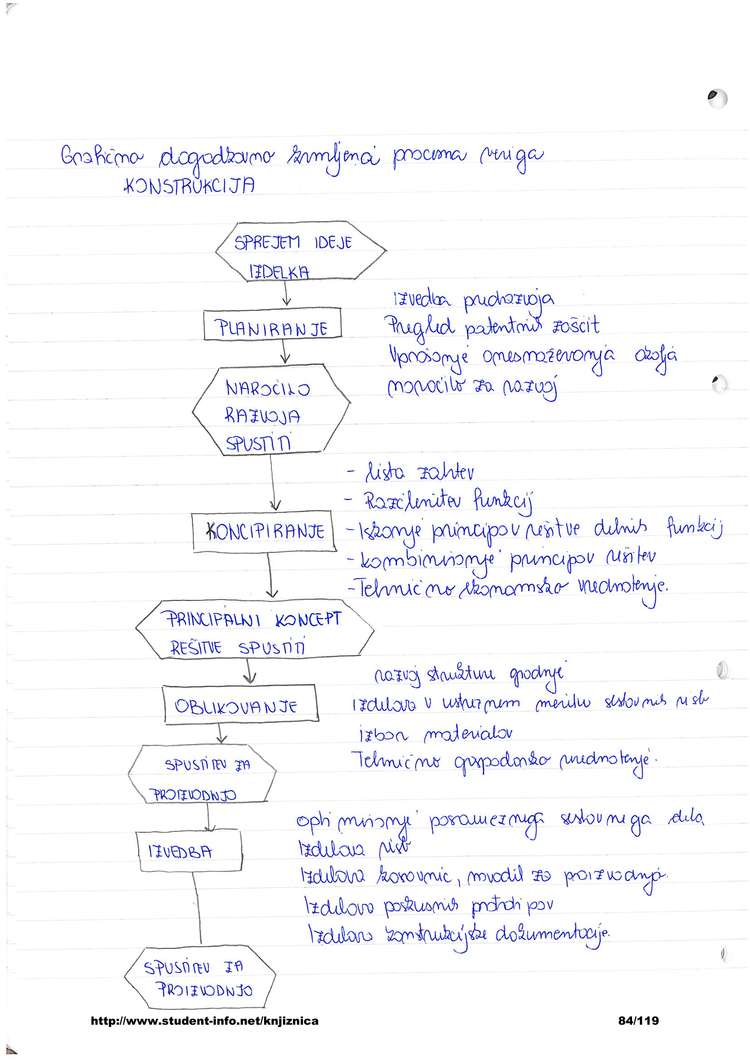 Grafično dogodkovno krmiljena procesna veriga
KONSTRUKCIJA
SPREJEM IDEJE
IZDELKA
PLANIRANJE
Izvedba predrazvoja
Pregled patentnih zaščit
Vprašanje onesnaževanja okolja
naročilo za razvoj
NAROČILO
RAZVOJA
SPUSTITI
- lista zahtev
- Razčlenitev funkcij
KONCIPIRANJE
- Iskanje principov rešitve delnih funkcij
- kombiniranje principov rešitev
- Tehnično ekonomsko vrednotenje.
PRINCIPALNI KONCEPT
REŠITVE SPUSTITI
razvoj strukture gradnje
OBLIKOVANJE
Izdelava v ustreznem merilu sestavnih risb
izbor materialov
Tehnično gospodarsko vrednotenje.
SPUSTITEV ZA
PROIZVODNJO
optimiranje posameznega sestavnega dela,
IZVEDBA
Izdelava risb
Izdelava kosovnic, navodil za proizvodnjo.
Izdelava poskusnih prototipov
Izdelava konstrukcijske dokumentacije.
SPUSTITEV ZA
PROIZVODNJO
http://www.student-info.net/knjiznica
84/119